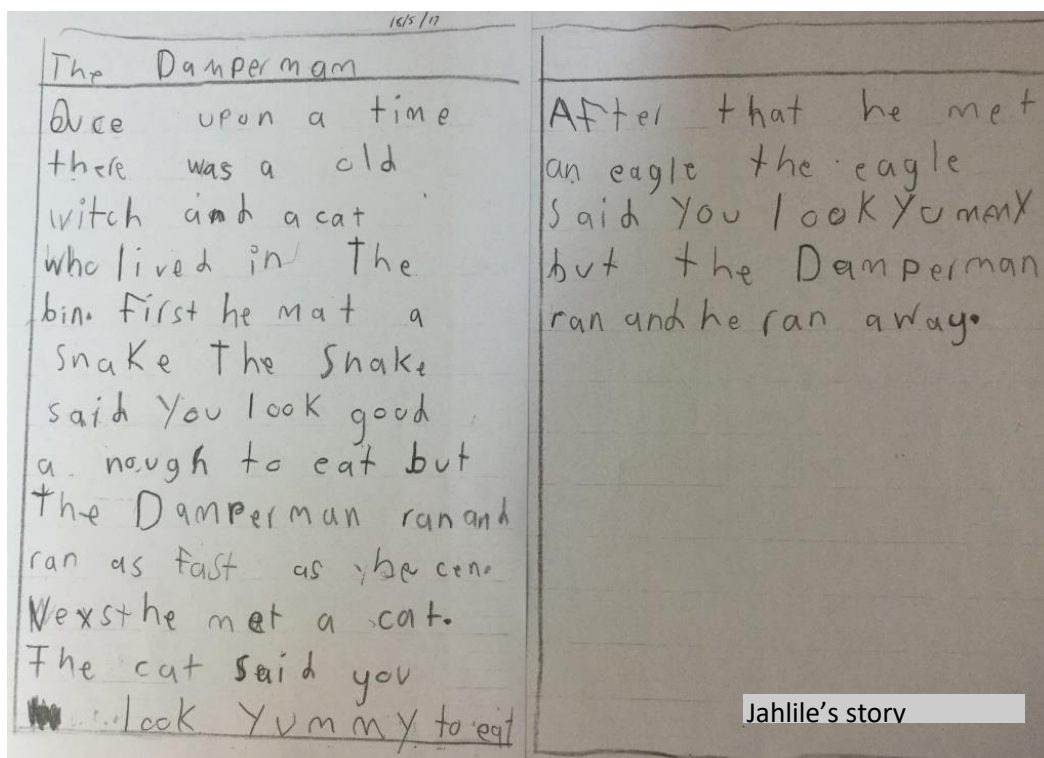 16/5/17
The Damperman
Once upon a time
there was a old
witch and a cat
who lived in the
bin. First he mat a
snake the snake
said you look good
a nough to eat but
the Damperman ran and
ran as fast as he cen.
Nexst he met a cat.
The cat said you
look yummy to eat
After that he met
an eagle the eagle
said you look yummy
but the Damperman
ran and he ran away.
Jahlile's story